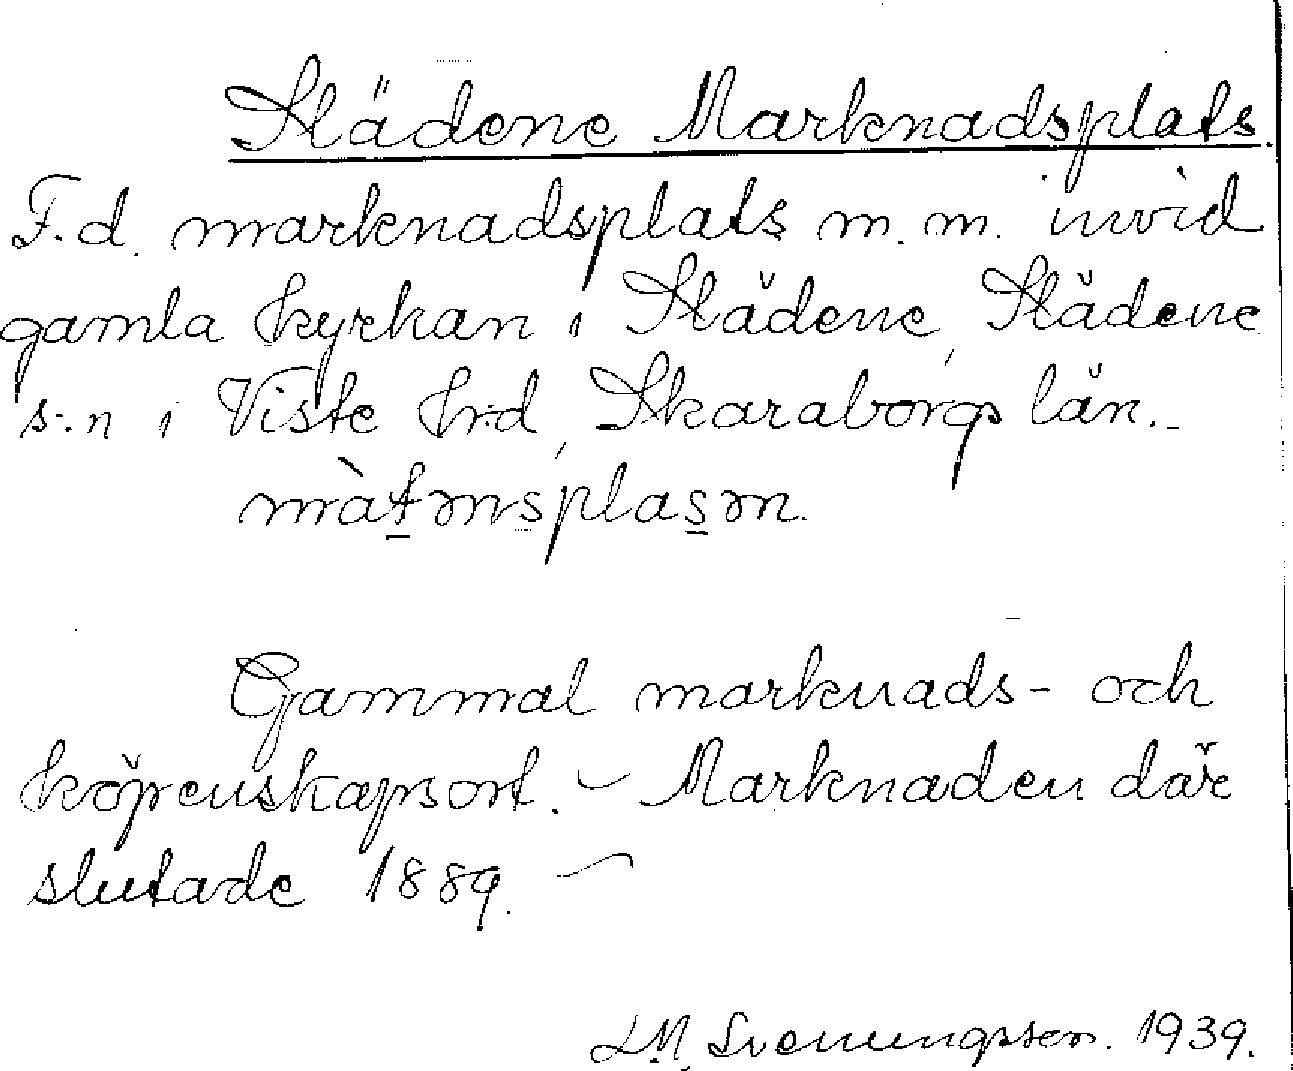 Slädene Marknadsplats.
F.d. marknadsplats m. m. invid
gamla kyrkan i Slädene, Slädene
s:n i Viste hrd, Skaraborgs län.-
màtənsplasən.
Gammal marknads- och
köpenskapsort. - Marknaden där
slutade 1889. -
L.M. Svenungsson. 1939.